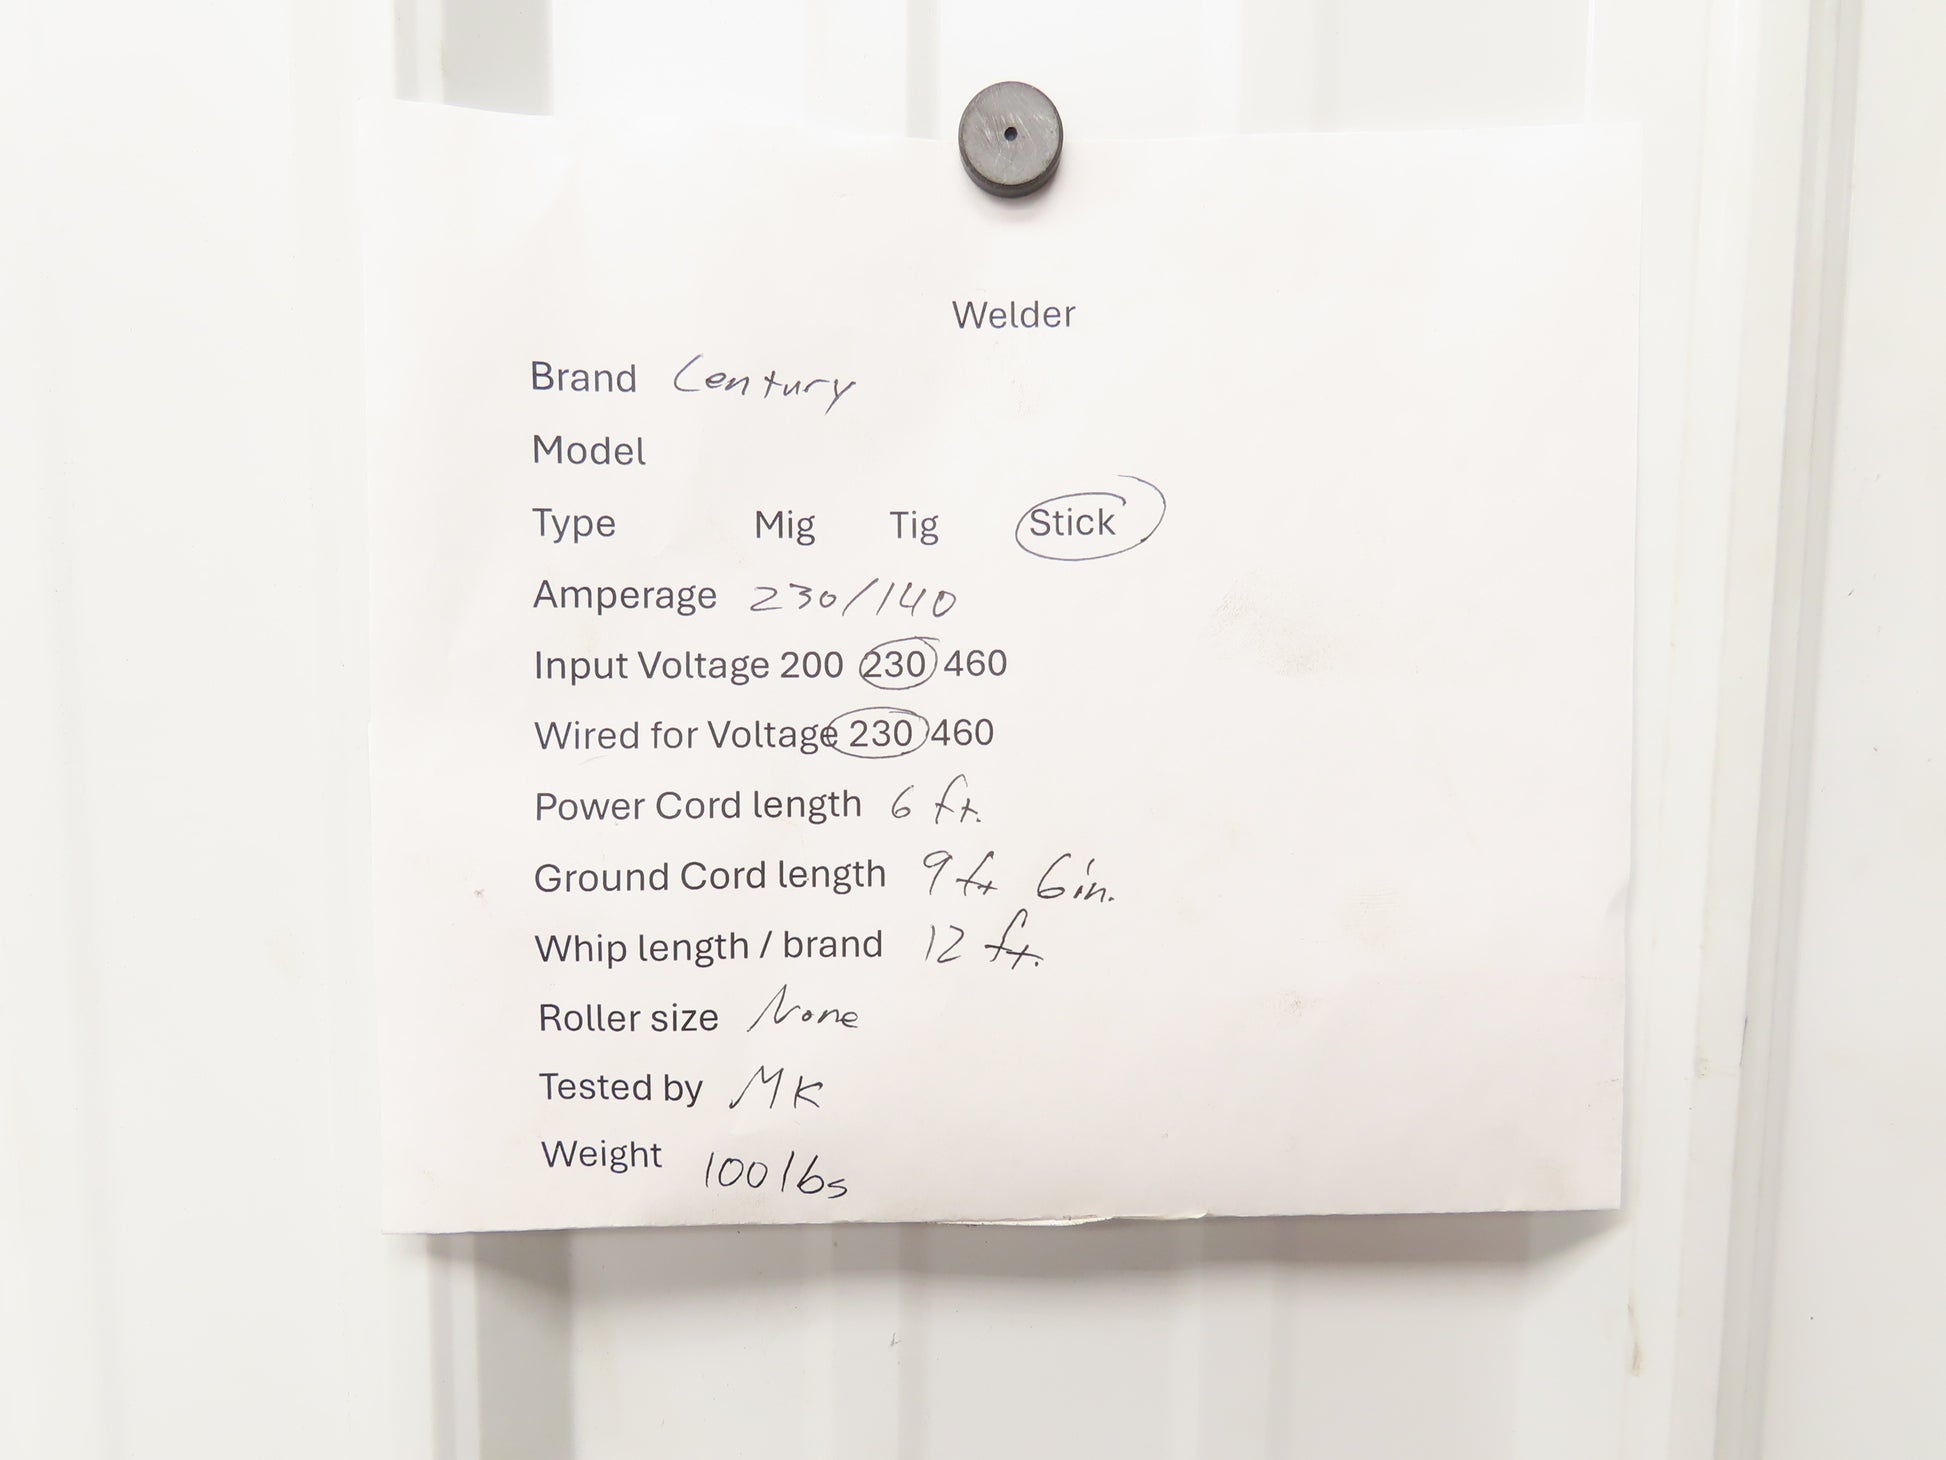 Welder
Brand Century
Model
Type Mig Tig Stick
Amperage 230/140
Input Voltage 200 230 460
Wired for Voltage 230 460
Power Cord length 6 ft.
Ground Cord length 9 ft 6in.
Whip length / brand 12 ft.
Roller size None
Tested by MK
Weight 100 lbs